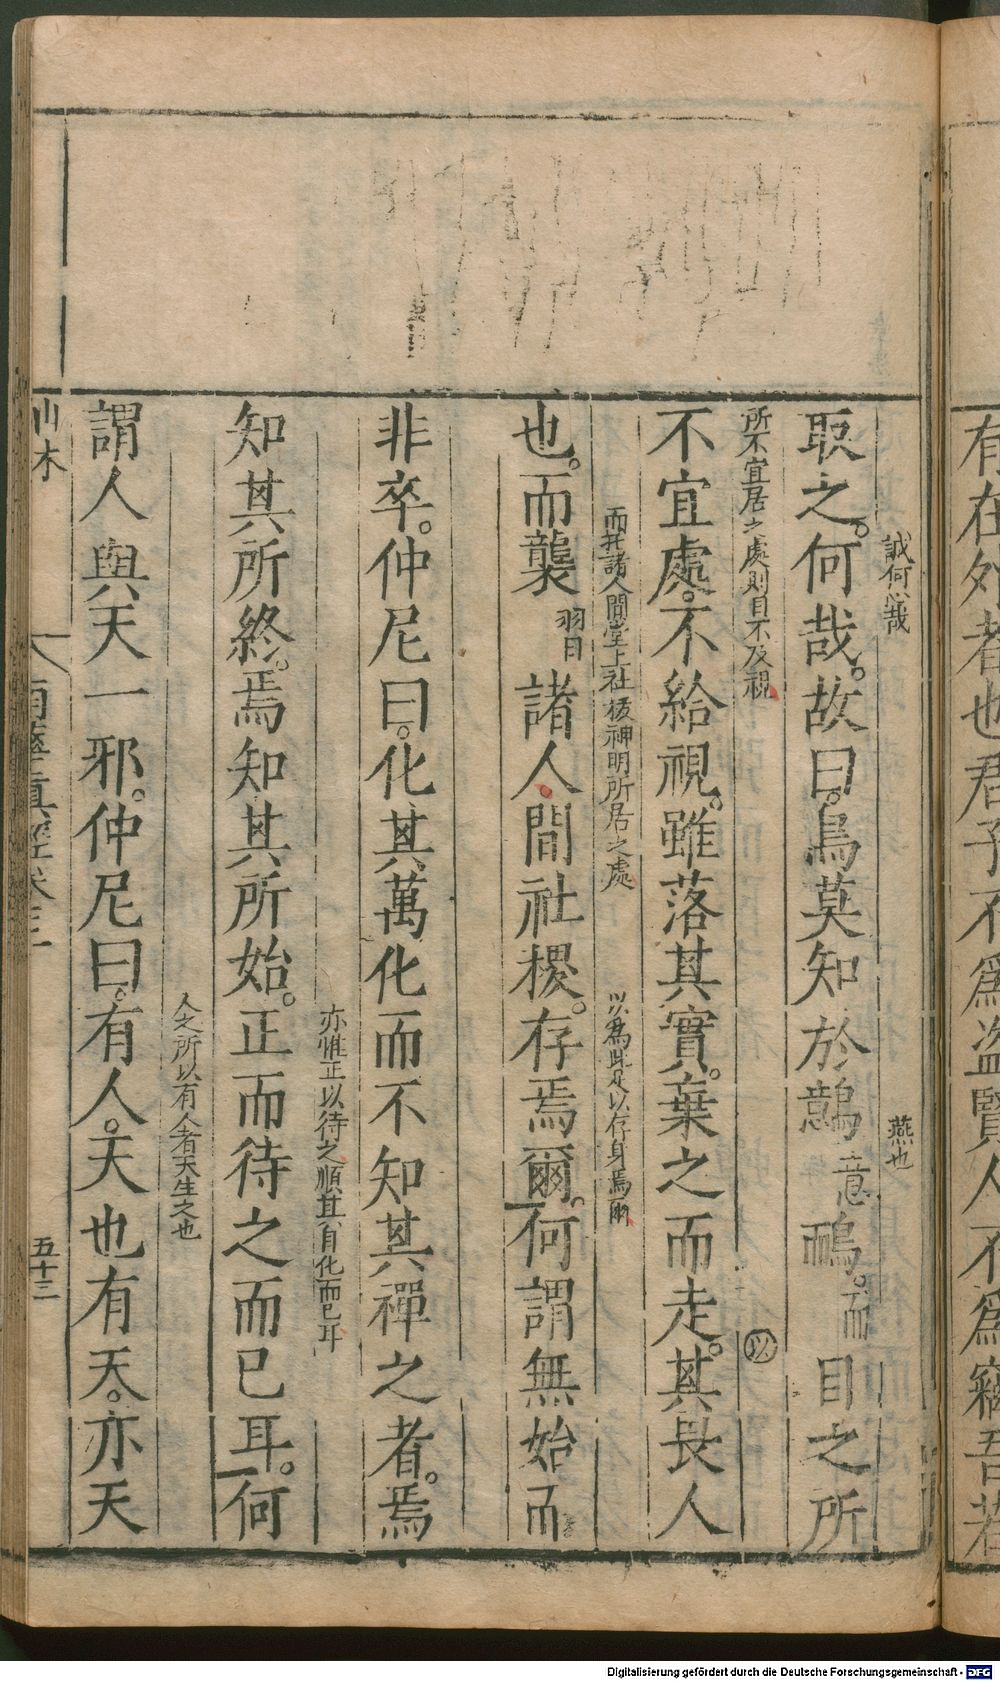 有在外者也君子不爲盗賢人不爲竊吾若
誠何心哉
燕也
取之。何哉。故曰。鳥莫知於鷾意鴯。而目之所
所不宜居之處則目不及視
㕥
不宜處。不給視。雖落其實。棄之而走。其畏人
而托諸人間堂上社稷神明所居之處
以爲此足以存身焉爾
也。而襲習諸人間社稷。存焉爾。何謂無始而
非卒。仲尼曰。化其萬化而不知其禪之者。焉
亦惟正以待之順其自化而已耳
知其所終。焉知其所始。正而待之而已耳。何
人之所以有人者天生之也
謂人與天一邪。仲尼曰。有人。天也有天。亦天
山木
南華真經卷三
五十三
Digitalisierung gefördert durch die Deutsche Forschungsgemeinschaft - DFG